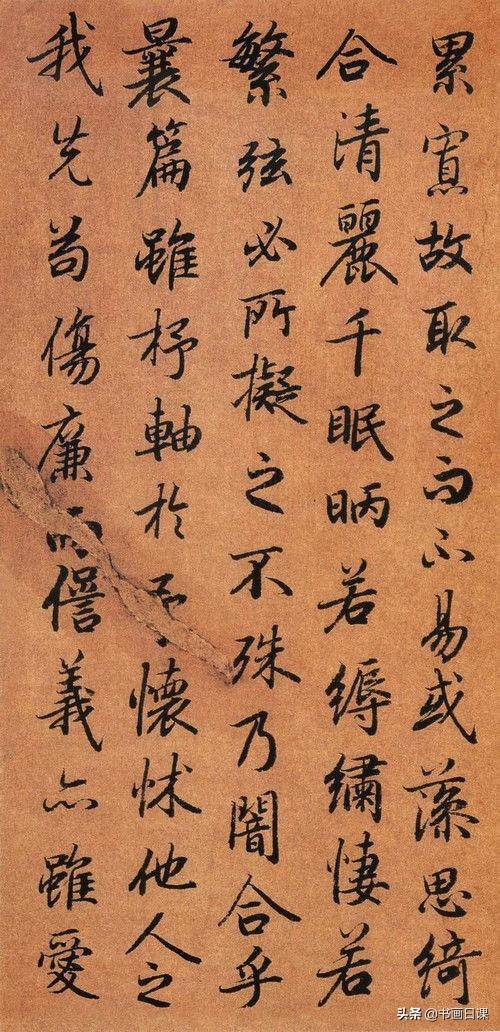 累寡故取之而不易或藻思綺
合清麗千眠昞若縟繡悽若
繁弦必所擬之不殊乃闇合乎
曩篇雖杼軸於予懷怵他人之
我先苟傷廉而愆義亦雖愛
头条 @书画日课